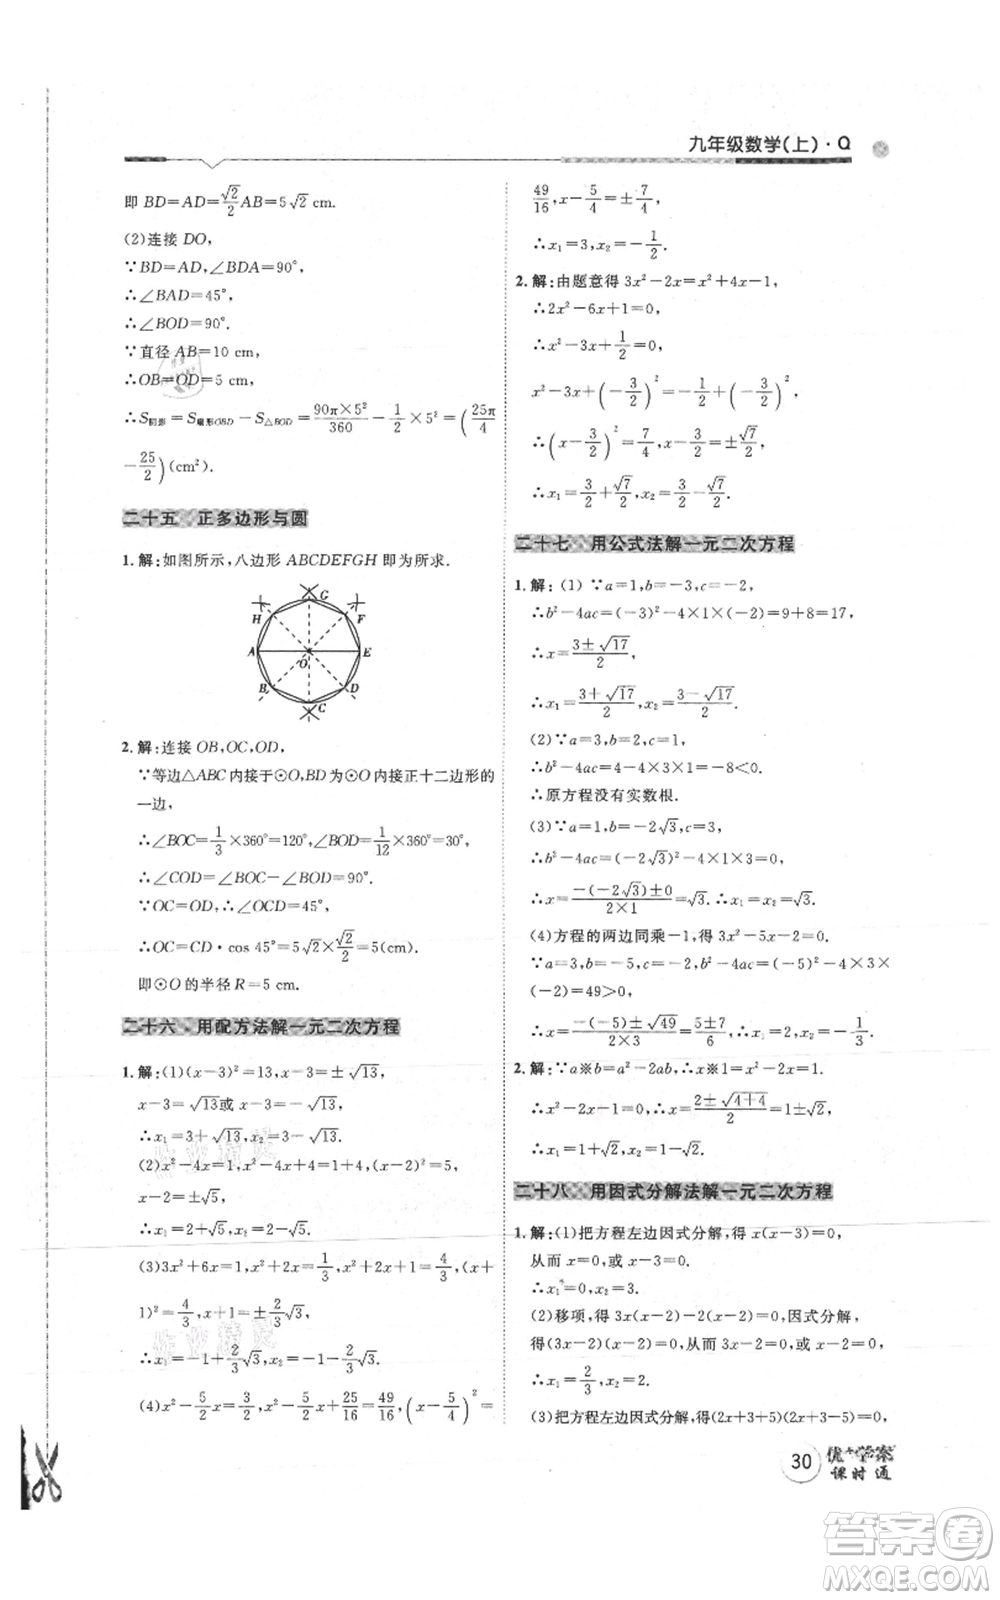 九年级数学(上)·Q
即 BD=AD=\frac{\sqrt{2}}{2}AB=5\sqrt{2} cm.
(2)连接 DO,
∵BD=AD,∠BDA=90°,
∴∠BAD=45°,
∴∠BOD=90°.
∵直径 AB=10 cm,
∴OB=OD=5 cm,
∴S阴影=S扇形OBD-S△BOD=\frac{90π×5²}{360}-\frac{1}{2}×5²=(\frac{25π}{4}
-\frac{25}{2})(cm²).
二十五 正多边形与圆
1. 解:如图所示,八边形 ABCDEFGH 即为所求.
G
H F
A O E
B D
C
2. 解:连接 OB,OC,OD,
∵等边△ABC内接于⊙O,BD为内接正十二边形的
一边,
∴∠BOC=\frac{1}{3}×360°=120°,∠BOD=\frac{1}{12}×360°=30°,
∴∠COD=∠BOC-∠BOD=90°.
∵OC=OD,∴∠OCD=45°,
∴OC=CD·cos 45°=5\sqrt{2}×\frac{\sqrt{2}}{2}=5(cm).
即⊙O的半径 R=5 cm.
二十六 用配方法解一元二次方程
1. 解:(1)(x-3)²=13,x-3=±\sqrt{13},
x-3=\sqrt{13}或x-3=-\sqrt{13},
∴x₁=3+\sqrt{13},x₂=3-\sqrt{13}.
(2)x²-4x=1,x²-4x+4=1+4,(x-2)²=5,
x-2=±\sqrt{5},
∴x₁=2+\sqrt{5},x₂=2-\sqrt{5}.
(3)3x²+6x=1,x²+2x=\frac{1}{3},x²+2x+1=\frac{4}{3},(x+
1)²=\frac{4}{3},x+1=±\frac{2}{3}\sqrt{3},
∴x₁=-1+\frac{2}{3}\sqrt{3},x₂=-1-\frac{2}{3}\sqrt{3}.
(4)x²-\frac{5}{2}x=\frac{3}{2},x²-\frac{5}{2}x+\frac{25}{16}=\frac{49}{16},(x-\frac{5}{4})²=
\frac{49}{16},x-\frac{5}{4}=±\frac{7}{4},
∴x₁=3,x₂=-\frac{1}{2}.
2. 解:由题意得 3x²-2x=x²+4x-1,
∴2x²-6x+1=0,
∴x²-3x+\frac{1}{2}=0,
x²-3x+(-\frac{3}{2})²=-\frac{1}{2}+(-\frac{3}{2})²,
∴(x-\frac{3}{2})²=\frac{7}{4},x-\frac{3}{2}=±\frac{\sqrt{7}}{2},
∴x₁=\frac{3}{2}+\frac{\sqrt{7}}{2},x₂=\frac{3}{2}-\frac{\sqrt{7}}{2}.
二十七 用公式法解一元二次方程
1. 解:(1)∵a=1,b=-3,c=-2,
∴b²-4ac=(-3)²-4×1×(-2)=9+8=17,
∴x=\frac{3±\sqrt{17}}{2},
∴x₁=\frac{3+\sqrt{17}}{2},x₂=\frac{3-\sqrt{17}}{2}.
(2)∵a=3,b=2,c=1,
∴b²-4ac=4-4×3×1=-8<0.
∴原方程没有实数根.
(3)∵a=1,b=-2\sqrt{3},c=3,
∴b²-4ac=(-2\sqrt{3})²-4×1×3=0,
∴x=\frac{-(-2\sqrt{3})±0}{2×1}=\sqrt{3}.∴x₁=x₂=\sqrt{3}.
(4)方程的两边同乘-1,得 3x²-5x-2=0.
∵a=3,b=-5,c=-2,b²-4ac=(-5)²-4×3×
(-2)=49>0,
∴x=\frac{-(-5)±\sqrt{49}}{2×3}=\frac{5±7}{6},∴x₁=2,x₂=-\frac{1}{3}.
2. 解:∵a※b=a²-2ab,∴x※1=x²-2x,
∴x²-2x=1,x²-2x-1=0,x=\frac{2±\sqrt{4+4}}{2}=1±\sqrt{2},
∴x₁=1+\sqrt{2},x₂=1-\sqrt{2}.
二十八 用因式分解法解一元二次方程
1. 解:(1)把方程左边因式分解,得 x(x-3)=0,
从而 x=0,或 x-3=0.
∴x₁=0,x₂=3.
(2)移项,得 3x(x-2)-2(x-2)=0,因式分解,
得(3x-2)(x-2)=0,从而 3x-2=0,或 x-2=0,
∴x₁=\frac{2}{3},x₂=2.
(3)把方程左边因式分解,得(2x+3+5)(2x+3-5)=0,
30
优+学案
课时通
答案卷
MXQE.COM